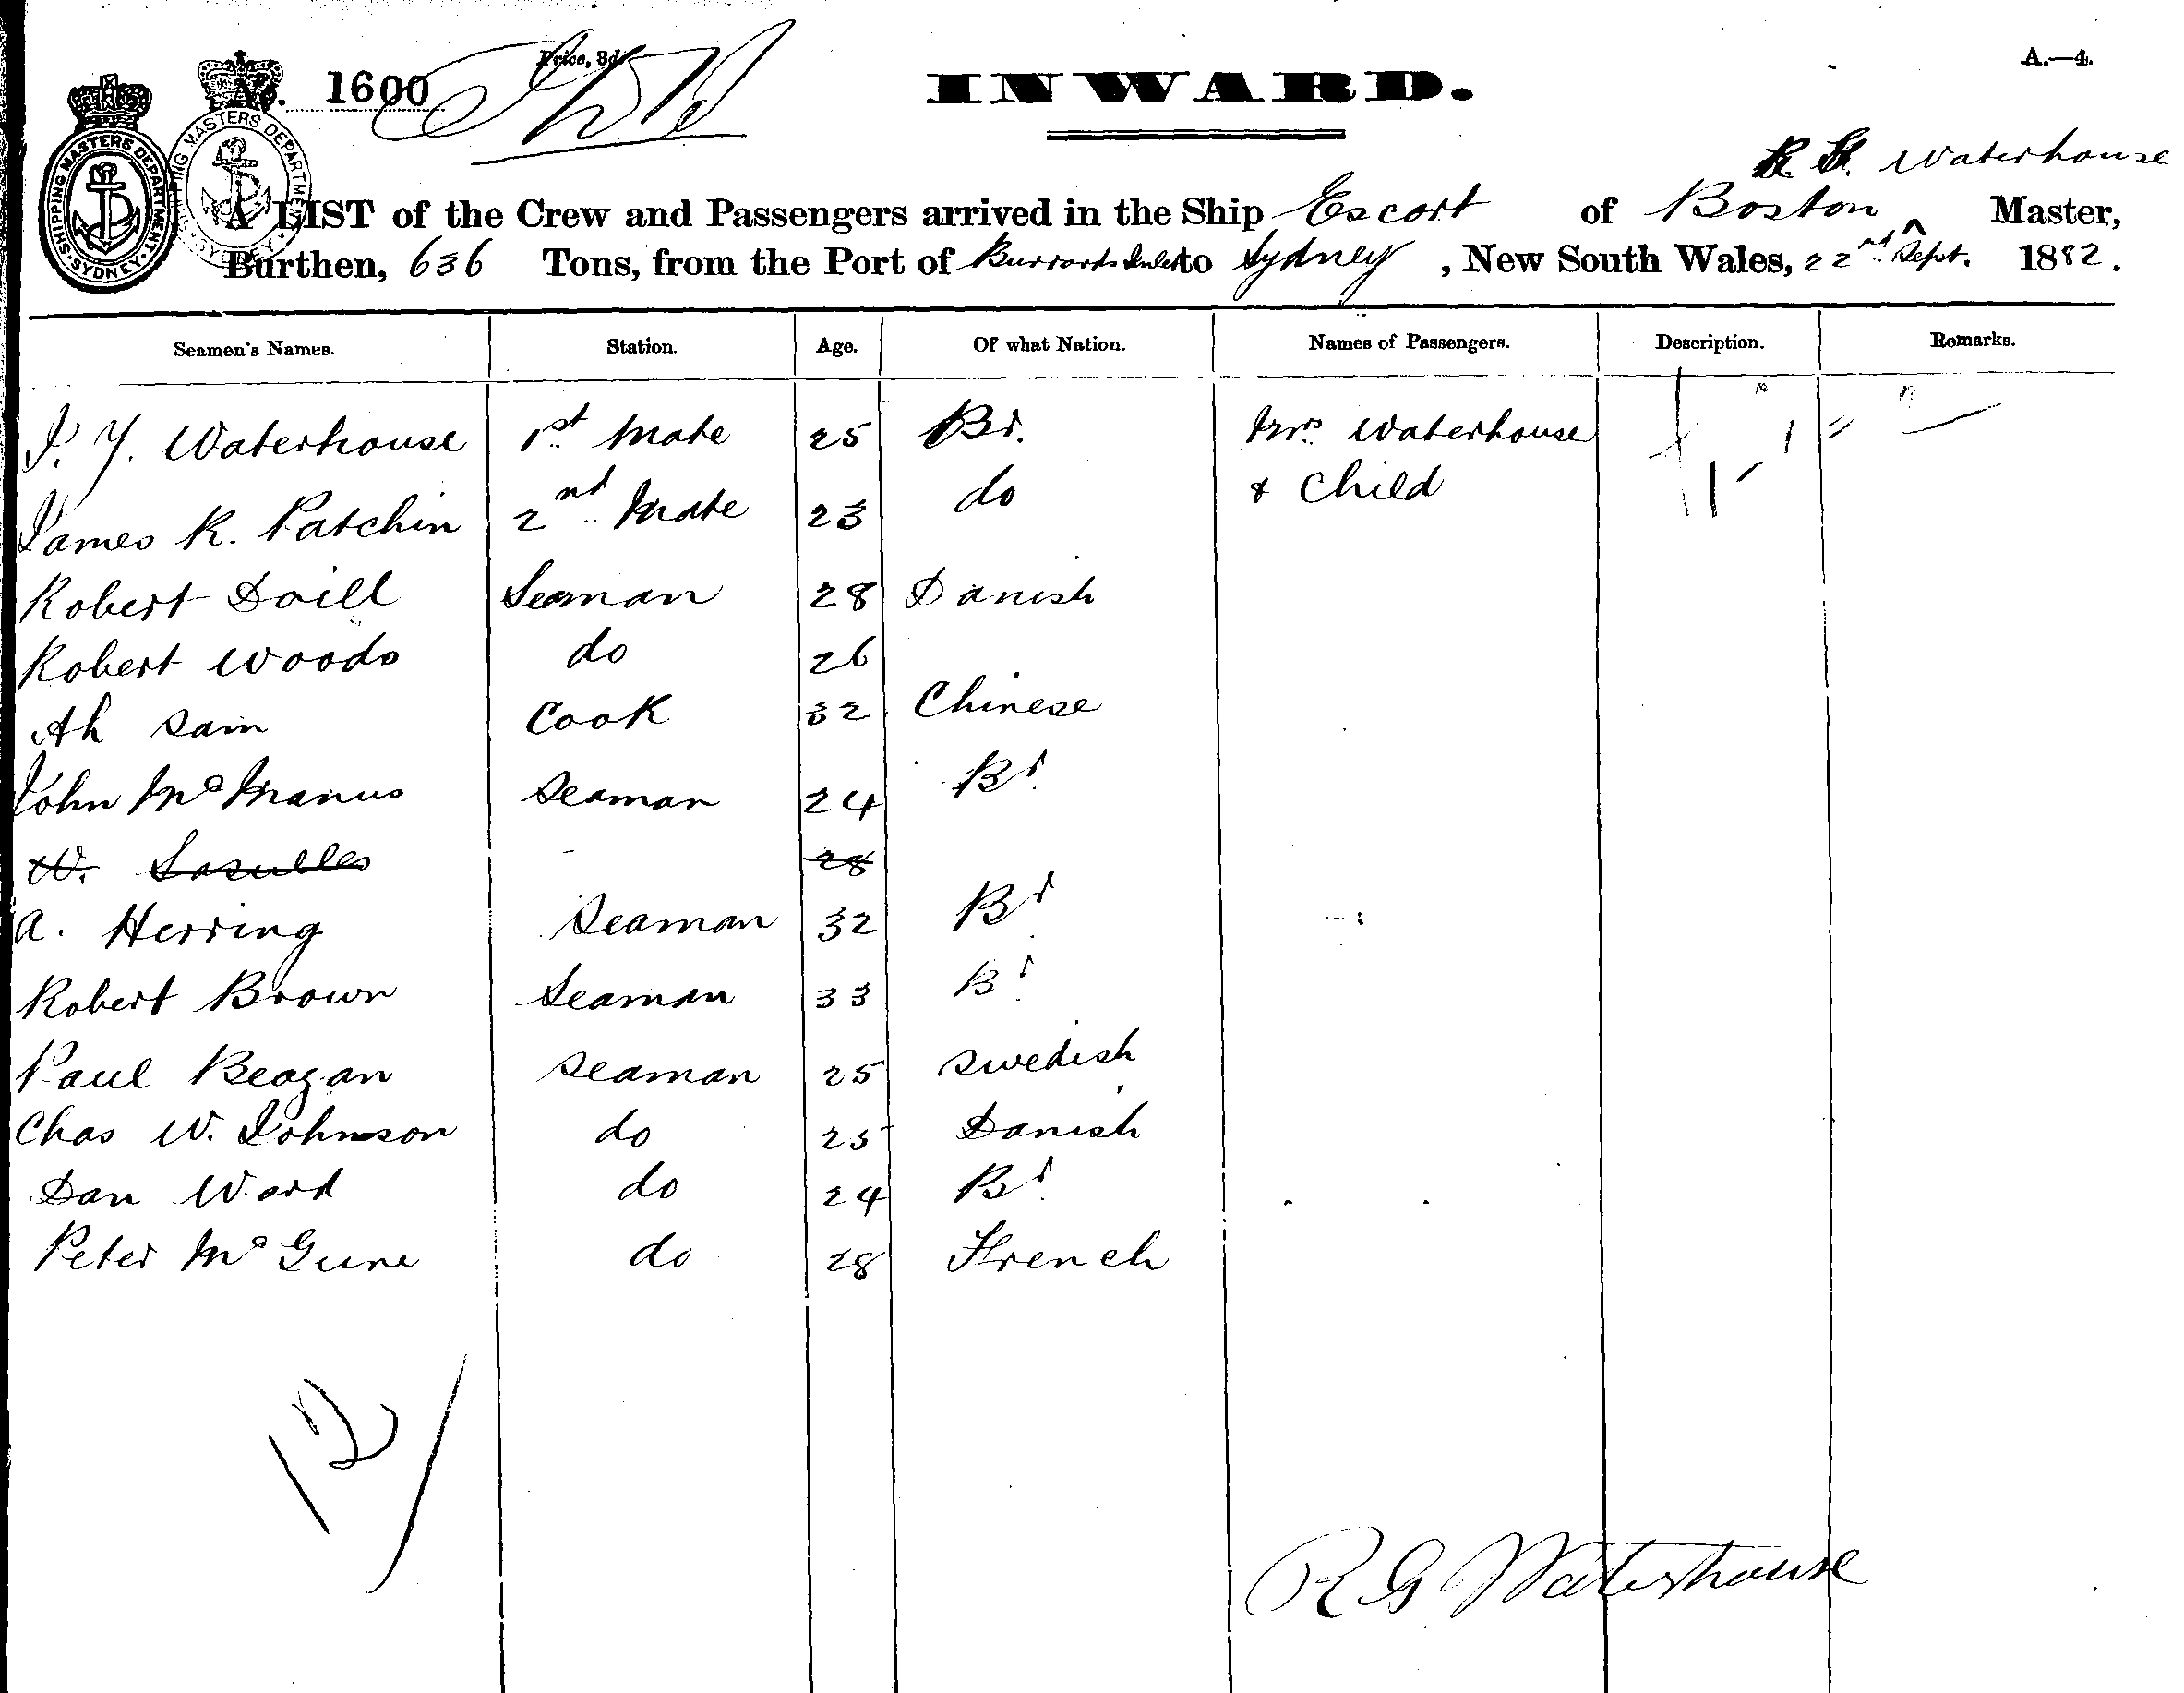 Price, 3d.
A.—4.
No. 1600
INWARD.
SHIPPING MASTERS DEPARTMENT · SYDNEY ·
R. G. Waterhouse
A LIST of the Crew and Passengers arrived in the Ship Escort of Boston ^ Master,
Burthen, 636 Tons, from the Port of Burrards Inlet to Sydney, New South Wales, 22nd Sept. 1882.
Seamen's Names. Station. Age. Of what Nation. Names of Passengers. Description. Remarks.
J. Y. Waterhouse 1st Mate 25 Br. Mrs Waterhouse
James R. Patchin 2nd Mate 23 do & Child
Robert Doill Seaman 28 Danish
Robert Woods do 26
Ah Sam Cook 32 Chinese
John McManus Seaman 24 Br.
W. 28
A. Herring Seaman 32 Br.
Robert Brown Seaman 33 Br.
Paul Beagan Seaman 25 Swedish
Chas W. Johnson do 25 Danish
Dan Ward do 24 Br.
Peter McGune do 28 French
12/
R G Waterhouse